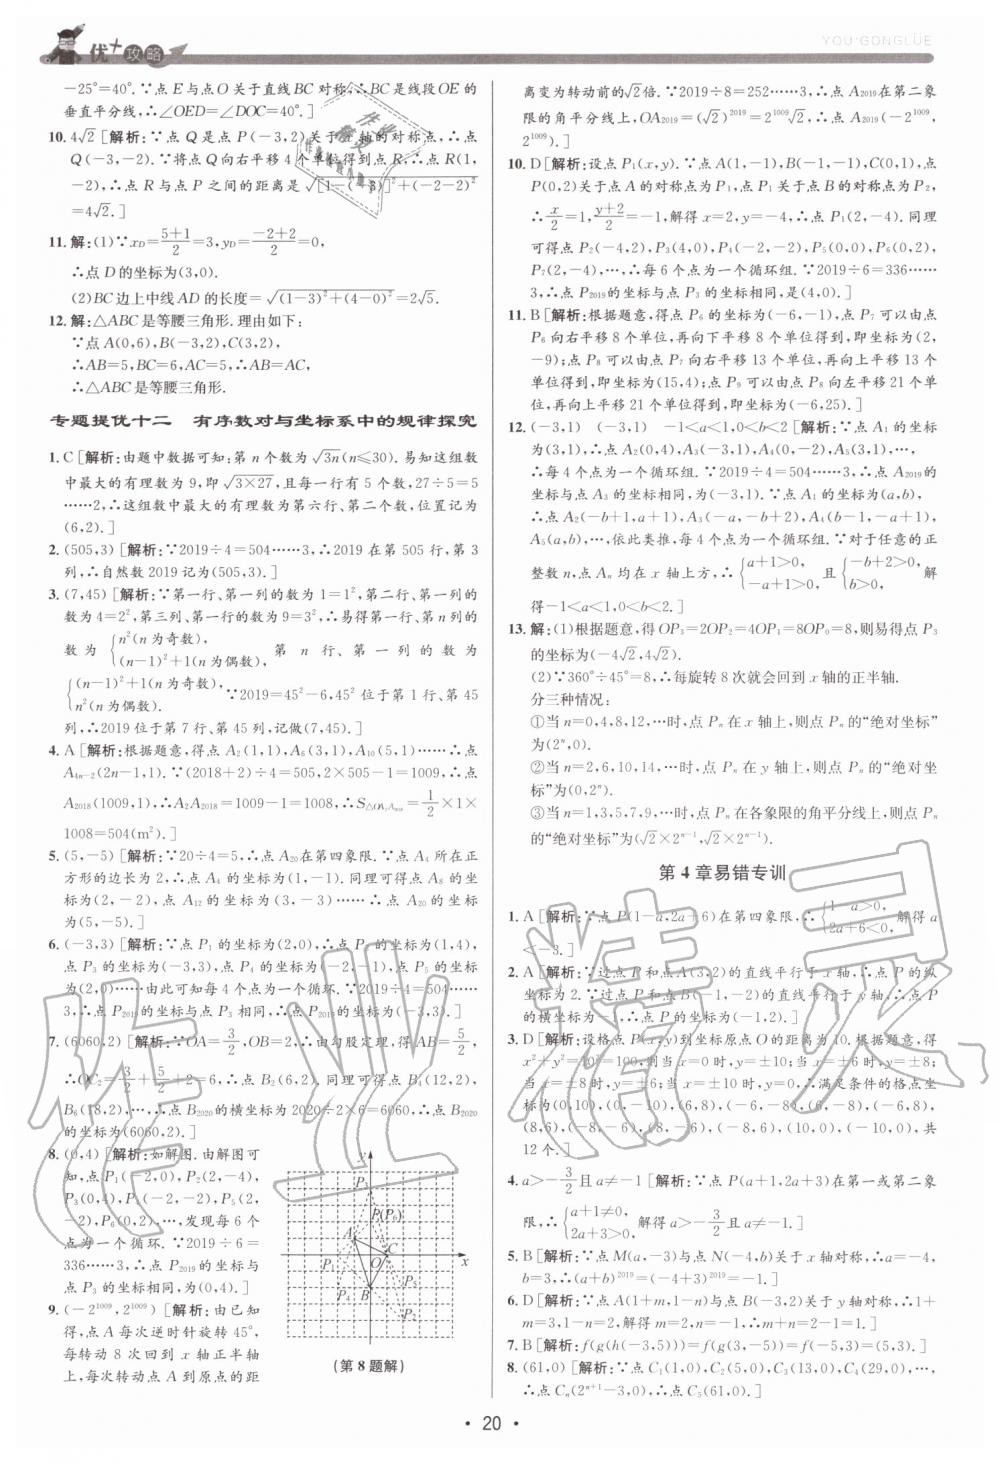 优+攻略
YOU+GONGLÜE
-25°=40°.∵点E与点O关于直线BC对称,∴BC是线段OE的
垂直平分线,∴∠OED=∠DOC=40°.]
10. 4√2 [解析:∵点Q是点P(-3,2)关于x轴的对称点,∴点
Q(-3,-2).∵将点Q向右平移4个单位得到点R,∴点R(1,
-2),∴点R与点P之间的距离是√[1-(-3)]²+(-2-2)²
=4√2.]
11. 解:(1)∵x_D=(5+1)/2=3,y_D=(-2+2)/2=0,
∴点D的坐标为(3,0).
(2)BC边上中线AD的长度=√(1-3)²+(4-0)²=2√5.
12. 解:△ABC是等腰三角形.理由如下:
∵点A(0,6),B(-3,2),C(3,2),
∴AB=5,BC=6,AC=5,∴AB=AC,
∴△ABC是等腰三角形.
专题提优十二 有序数对与坐标系中的规律探究
1. C [解析:由题中数据可知:第n个数为√3n(n≤30).易知这组数
中最大的有理数为9,即√3×27,且每一行有5个数,27÷5=5
……2,∴这组数中最大的有理数为第六行、第二个数,位置记为
(6,2).]
2. (505,3) [解析:∵2019÷4=504……3,∴2019在第505行,第3
列,∴自然数2019记为(505,3).]
3. (7,45) [解析:∵第一行、第一列的数为1=1²,第二行、第一列的
数为4=2²,第三列、第一行的数为9=3²,∴易得第一行、第n列的
数为{n²(n为奇数), (n-1)²+1(n为偶数), 第n行、第一列的数为
{(n-1)²+1(n为奇数), n²(n为偶数). ∵2019=45²-6,45²位于第1行、第45
列,∴2019位于第7行、第45列,记做(7,45).]
4. A [解析:根据题意,得点A₂(1,1),A₆(3,1),A₁₀(5,1)……∴点
A₄ₙ₋₂(2n-1,1).∵(2018+2)÷4=505,2×505-1=1009,∴点
A₂₀₁₈(1009,1),∴A₂A₂₀₁₈=1009-1=1008,∴S△OA₂A₂₀₁₈=1/2×1×
1008=504(m²).]
5. (5,-5) [解析:∵20÷4=5,∴点A₂₀在第四象限.∵点A₄所在正
方形的边长为2,∴点A₄的坐标为(1,-1).同理可得点A₈的坐标
为(2,-2),点A₁₂的坐标为(3,-3)……∴点A₂₀的坐标
为(5,-5).]
6. (-3,3) [解析:∵点P₁的坐标为(2,0),∴点P₂的坐标为(1,4),
点P₃的坐标为(-3,3),点P₄的坐标为(-2,-1),点P₅的坐标
为(2,0)……由此可知每4个点为一个循环.∵2019÷4=504……
3,∴点P₂₀₁₉的坐标与点P₃相同,∴点P₂₀₁₉的坐标为(-3,3).]
7. (6060,2) [解析:∵OA=3/2,OB=2,∴由勾股定理,得AB=5/2,
∴OC₂=3/2+5/2+2=6,∴点B₂(6,2).同理可得点B₄(12,2),
B₆(18,2),…,∴点B₂₀₂₀的横坐标为2020÷2×6=6060,∴点B₂₀₂₀
的坐标为(6060,2).]
8. (0,4) [解析:如解图.由解图可
知,点P₁(-2,0),P₂(2,-4),
P₃(0,4),P₄(-2,-2),P₅(2,
-2),P₆(0,2),…,发现每6个
点为一个循环.∵2019÷6=
336……3,∴点P₂₀₁₉的坐标与
点P₃的坐标相同,为(0,4).]
P₃ P(P₆) A C P₁ O x P₅ P₄ B
(第8题解)
9. (-2¹⁰⁰⁹,2¹⁰⁰⁹) [解析:由已知
得,点A每次逆时针旋转45°,
每转动8次回到x轴正半轴
上,每次转动点A到原点的距
离变为转动前的√2倍.∵2019÷8=252……3,∴点A₂₀₁₉在第二象
限的角平分线上,OA₂₀₁₉=(√2)²⁰¹⁹=2¹⁰⁰⁹√2,∴点A₂₀₁₉(-2¹⁰⁰⁹,
2¹⁰⁰⁹).]
10. D [解析:设点P₁(x,y).∵点A(1,-1),B(-1,-1),C(0,1),点
P(0,2)关于点A的对称点为P₁,点P₁关于点B的对称点为P₂,
∴x/2=1,(y+2)/2=-1,解得x=2,y=-4,∴点P₁(2,-4).同理
可得点P₂(-4,2),P₃(4,0),P₄(-2,-2),P₅(0,0),P₆(0,2),
P₇(2,-4),…,∴每6个点为一个循环组.∵2019÷6=336……
3,∴点P₂₀₁₉的坐标与点P₃的坐标相同,是(4,0).]
11. B [解析:根据题意,得点P₆的坐标为(-6,-1),点P₇可以由点
P₆向右平移8个单位,再向下平移8个单位得到,即坐标为(2,
-9);点P₈可以由点P₇向右平移13个单位,再向上平移13个
单位得到,即坐标为(15,4);点P₉可以由点P₈向左平移21个单
位,再向上平移21个单位得到,即坐标为(-6,25).]
12. (-3,1) (-3,1) -1<a<1,0<b<2 [解析:∵点A₁的坐标
为(3,1),∴点A₂(0,4),A₃(-3,1),A₄(0,-2),A₅(3,1),…,
∴每4个点为一个循环组.∵2019÷4=504……3,∴点A₂₀₁₉的
坐标与点A₃的坐标相同,为(-3,1).∵点A₁的坐标为(a,b),
∴点A₂(-b+1,a+1),A₃(-a,-b+2),A₄(b-1,-a+1),
A₅(a,b),…,依此类推,每4个点为一个循环组.∵对于任意的正
整数n,点Aₙ均在x轴上方,∴{a+1>0, -a+1>0, 且{-b+2>0, b>0, 解
得-1<a<1,0<b<2.]
13. 解:(1)根据题意,得OP₃=2OP₂=4OP₁=8OP₀=8,则易得点P₃
的坐标为(-4√2,4√2).
(2)∵360°÷45°=8,∴每旋转8次就会回到x轴的正半轴.
分三种情况:
①当n=0,4,8,12,…时,点Pₙ在x轴上,则点Pₙ的“绝对坐标”
为(2ⁿ,0).
②当n=2,6,10,14,…时,点Pₙ在y轴上,则点Pₙ的“绝对坐
标”为(0,2ⁿ).
③当n=1,3,5,7,9,…时,点Pₙ在各象限的角平分线上,则点Pₙ
的“绝对坐标”为(√2×2ⁿ⁻¹,√2×2ⁿ⁻¹).
第4章易错专训
1. A [解析:∵点P(1-a,2a+6)在第四象限,∴{1-a>0, 2a+6<0, 解得a
<-3.]
2. A [解析:∵过点P和点A(3,2)的直线平行于x轴,∴点P的纵
坐标为2.∵过点P和点B(-1,-2)的直线平行于y轴,∴点P
的横坐标为-1,∴点P的坐标为(-1,2).]
3. D [解析:设格点P(x,y)到坐标原点O的距离为10.根据题意,得
x²+y²=10²=100,则当x=0时,y=±10;当x=±6时,y=±8;
当x=±8时,y=±6;当x=±10时,y=0,∴满足条件的格点坐
标为(0,10),(0,-10),(6,8),(-6,-8),(6,-8),(-6,8),
(8,6),(-8,-6),(8,-6),(-8,6),(10,0),(-10,0),共
12个.]
4. a>-3/2且a≠-1 [解析:∵点P(a+1,2a+3)在第一或第二象
限,∴{a+1≠0, 2a+3>0, 解得a>-3/2且a≠-1.]
5. B [解析:∵点M(a,-3)与点N(-4,b)关于x轴对称,∴a=-4,
b=3,∴(a+b)²⁰¹⁹=(-4+3)²⁰¹⁹=-1.]
6. D [解析:∵点A(1+m,1-n)与点B(-3,2)关于y轴对称,∴1+
m=3,1-n=2,解得m=2,n=-1,∴m+n=2-1=1.]
7. B [解析:f(g(h(-3,5)))=f(g(3,-5))=f(-5,3)=(5,3).]
8. (61,0) [解析:∵点C₁(1,0),C₂(5,0),C₃(13,0),C₄(29,0),…,
∴点Cₙ(2ⁿ⁺¹-3,0),∴点C₅(61,0).]
· 20 ·
作业精灵